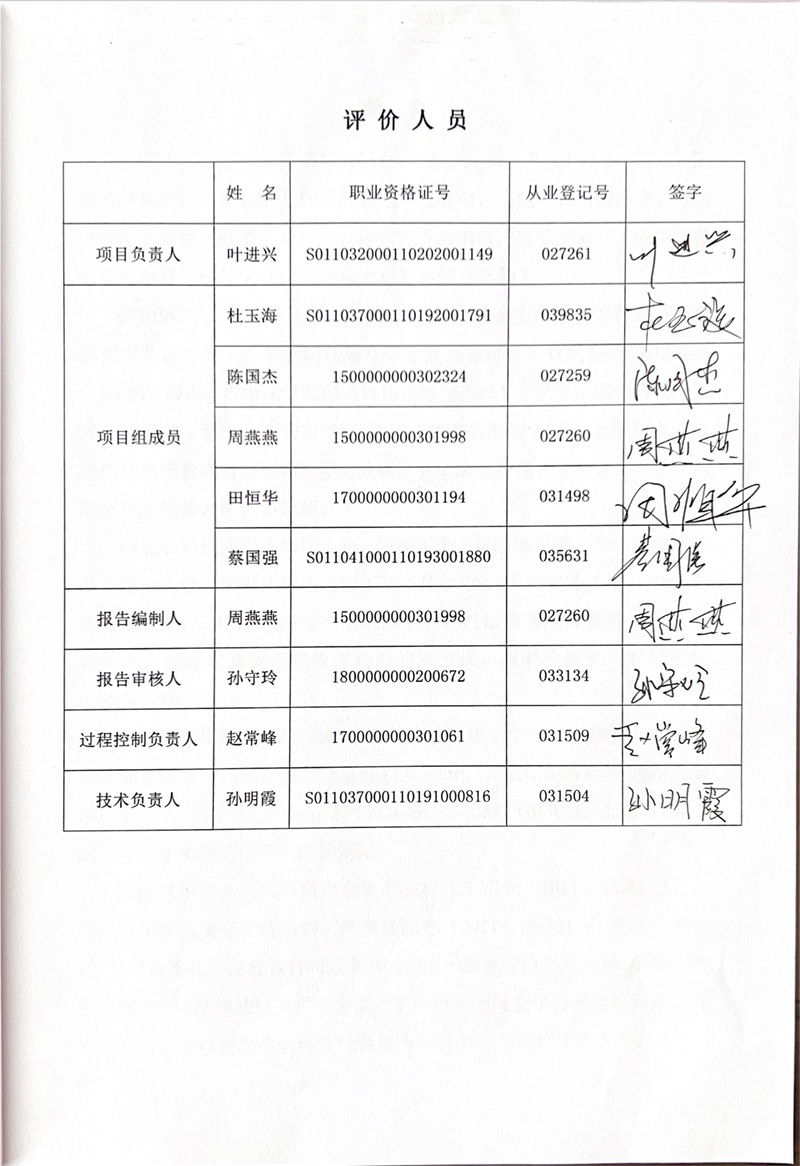 评价人员
姓 名 职业资格证号 从业登记号 签字
项目负责人 叶进兴 S011032000110202001149 027261 叶进兴
项目组成员 杜玉海 S011037000110192001791 039835
陈国杰 1500000000302324 027259 陈国杰
周燕燕 1500000000301998 027260 周燕燕
田恒华 1700000000301194 031498
蔡国强 S011041000110193001880 035631 蔡国强
报告编制人 周燕燕 1500000000301998 027260 周燕燕
报告审核人 孙守玲 1800000000200672 033134 孙守玲
过程控制负责人 赵常峰 1700000000301061 031509 赵常峰
技术负责人 孙明霞 S011037000110191000816 031504 孙明霞